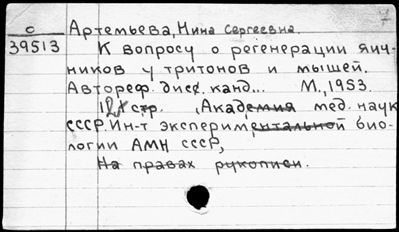 с
39513
Артемьева, Нина Сергеевна.
К вопросу о регенерации яич-
ников у тритонов и мышей.
Автореф. дисс. канд... М., 1953.
стр. (Академия мед. наук
СССР. Ин-т экспериментальной био-
логии АМН СССР,
На правах рукописи.